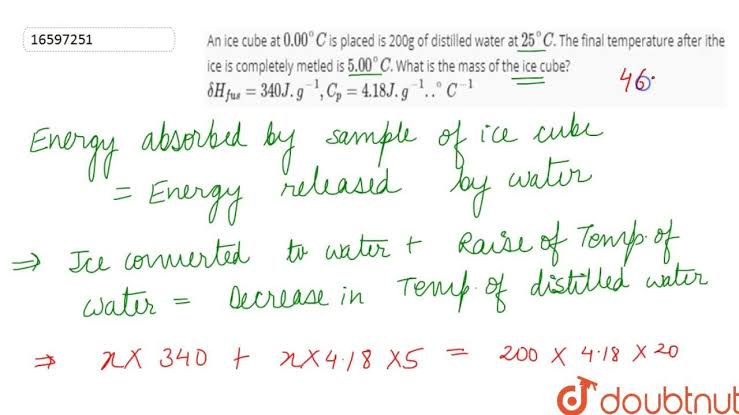 16597251
An ice cube at 0.00°C is placed is 200g of distilled water at 25°C. The final temperature after ithe
ice is completely metled is 5.00°C. What is the mass of the ice cube?
δH_fus = 340J.g⁻¹, C_p = 4.18J.g⁻¹..°C⁻¹
46.
Energy absorbed by sample of ice cube
= Energy released by water
⇒ Ice converted to water + Raise of Temp. of
water = Decrease in Temp. of distilled water
⇒ x × 340 + x × 4.18 × 5 = 200 × 4.18 × 20
doubtnut